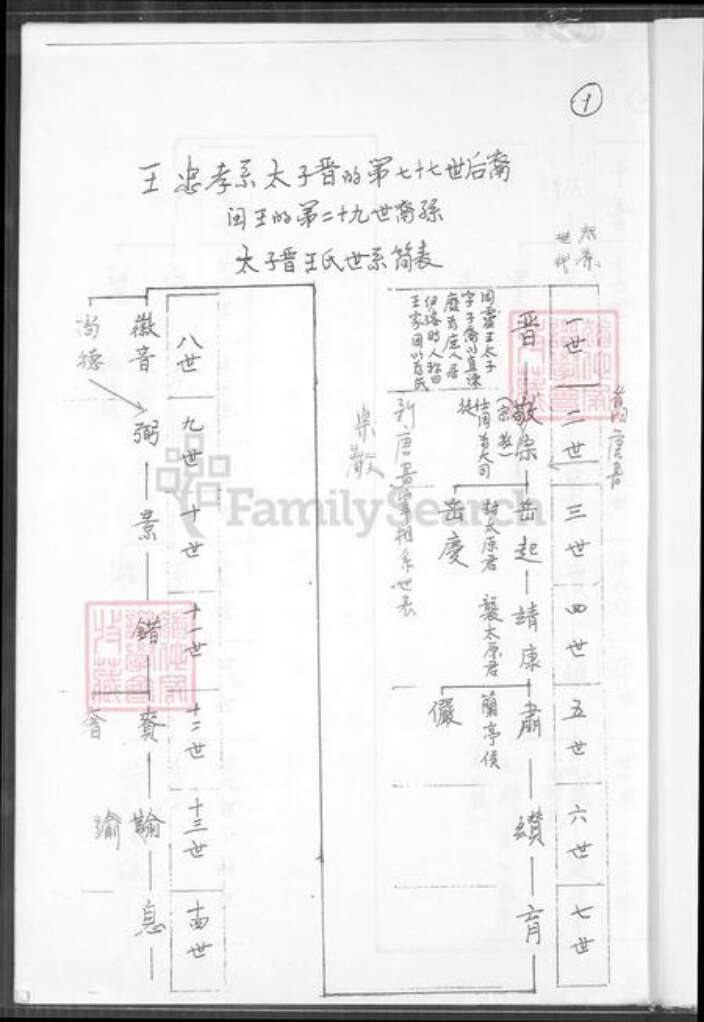 1
王忠孝系太子晋的第七十七世后裔
闽王的第二十九世裔孫
太子晋王氏世系简表
世代
一世
晋
周靈王太子
字子喬以直諫
廢为庶人居
王家因以为氏
二世
敬宗
(宗敬)
仕周为大司
徒
舊唐書
新唐書宰相系世表
三世
岳起
封太原君
岳慶
四世
請康
襲太原君
五世
肅
蘭亭侯
儼
六世
缵
七世
育
八世
徽音
尚德
九世
弼
十世
景
十一世
錯
十二世
賁
奢
十三世
論
渝
十四世
息
FamilySearch